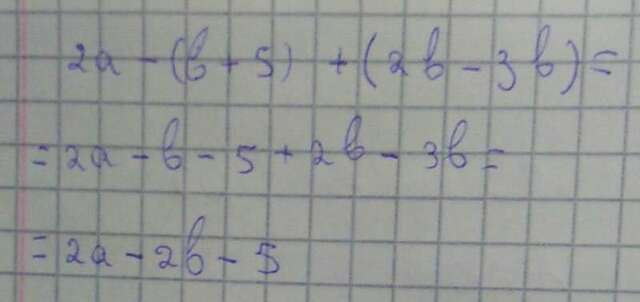 2a - (b + 5) + (2b - 3b) =
= 2a - b - 5 + 2b - 3b =
= 2a - 2b - 5